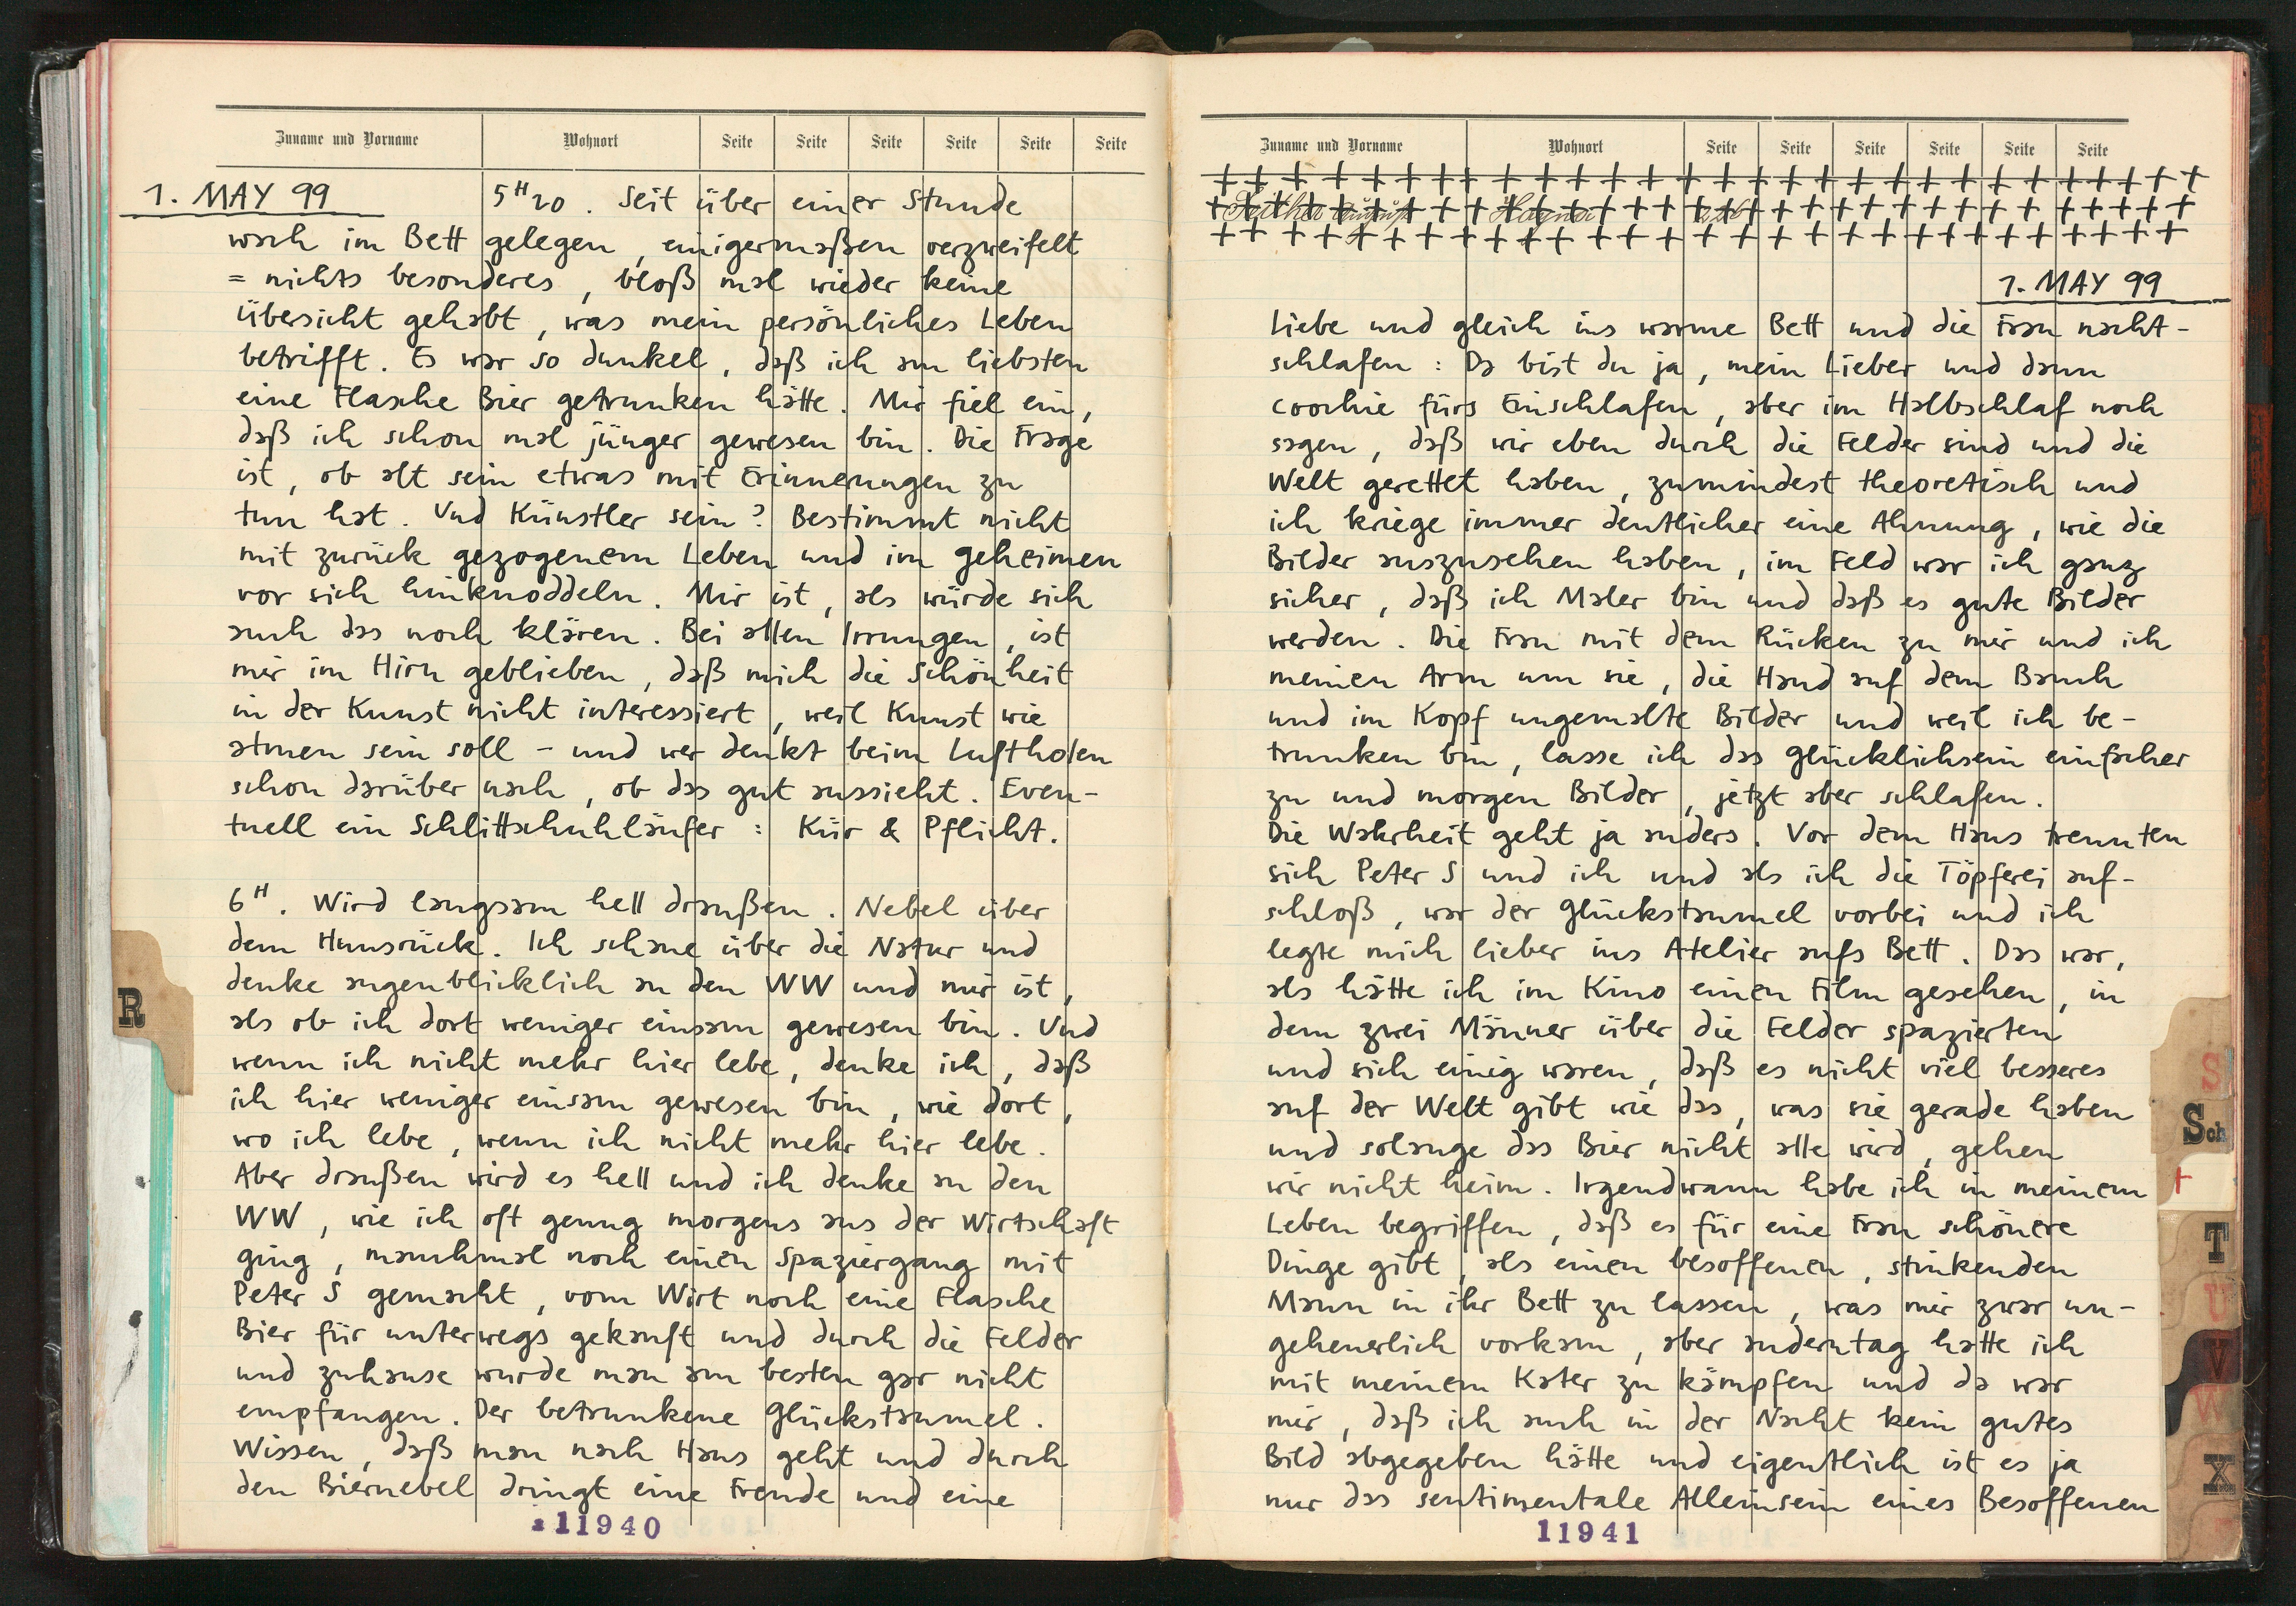 Zuname und Vorname Wohnort Seite Seite Seite Seite Seite Seite
1. MAY 99 5H20. Seit über einer Stunde
wach im Bett gelegen, einigermaßen verzweifelt
= nichts besonderes, bloß mal wieder keine
Übersicht gehabt, was mein persönliches Leben
betrifft. Es war so dunkel, daß ich am liebsten
eine Flasche Bier getrunken hätte. Mir fiel ein,
daß ich schon mal jünger gewesen bin. Die Frage
ist, ob alt sein etwas mit Erinnerungen zu
tun hat. Und Künstler sein? Bestimmt nicht
mit zurück gezogenem Leben und im geheimen
vor sich hinknoddeln. Mir ist, als würde sich
auch das noch klären. Bei allen Irrungen, ist
mir im Hirn geblieben, daß mich die Schönheit
in der Kunst nicht interessiert, weil Kunst wie
atmen sein soll - und wer denkt beim Luftholen
schon darüber nach, ob das gut aussieht. Even-
tuell ein Schlittschuhläufer: Kür & Pflicht.
6H. Wird langsam hell draußen. Nebel über
dem Hunsrück. Ich schaue über die Natur und
denke augenblicklich an den WW und mir ist,
als ob ich dort weniger einsam gewesen bin. Und
wenn ich nicht mehr hier lebe, denke ich, daß
ich hier weniger einsam gewesen bin, wie dort,
wo ich lebe, wenn ich nicht mehr hier lebe.
Aber draußen wird es hell und ich denke an den
WW, wie ich oft genug morgens aus der Wirtschaft
ging, manchmal noch einen Spaziergang mit
Peter S gemacht, vom Wirt noch eine Flasche
Bier für unterwegs gekauft und durch die Felder
und zuhause wurde man am besten gar nicht
empfangen. Der betrunkene Glückstaumel.
Wissen, daß man nach Haus geht und durch
den Biernebel dringt eine Freude und eine
11940
R
Zuname und Vorname Wohnort Seite Seite Seite Seite Seite Seite
1. MAY 99
Liebe und gleich ins warme Bett und die Frau nacht-
schlafen: Da bist du ja, mein Lieber und dann
coochie fürs Einschlafen, aber im Halbschlaf noch
sagen, daß wir eben durch die Felder sind und die
Welt gerettet haben, zumindest theoretisch und
ich kriege immer deutlicher eine Ahnung, wie die
Bilder auszusehen haben, im Feld war ich ganz
sicher, daß ich Maler bin und daß es gute Bilder
werden. Die Frau mit dem Rücken zu mir und ich
meinen Arm um sie, die Hand auf dem Bauch
und im Kopf ungemalte Bilder und weil ich be-
trunken bin, lasse ich das glücklichsein einfacher
zu und morgen Bilder, jetzt aber schlafen.
Die Wahrheit geht ja anders. Vor dem Haus trennten
sich Peter S und ich und als ich die Töpferei auf-
schloß, war der Glückstaumel vorbei und ich
legte mich lieber ins Atelier aufs Bett. Das war,
als hätte ich im Kino einen Film gesehen, in
dem zwei Männer über die Felder spazierten
und sich einig waren, daß es nicht viel besseres
auf der Welt gibt wie das, was sie gerade haben
und solange das Bier nicht alle wird, gehen
wir nicht heim. Irgendwann habe ich in meinem
Leben begriffen, daß es für eine Frau schönere
Dinge gibt, als einen besoffenen, stinkenden
Mann in ihr Bett zu lassen, was mir zwar un-
geheuerlich vorkam, aber anderntag hatte ich
mit meinem Kater zu kämpfen und da war
mir, daß ich auch in der Nacht kein gutes
Bild abgegeben hätte und eigentlich ist es ja
nur das sentimentale Alleinsein eines Besoffenen
11941
S
Sch
T
U
V
W
X